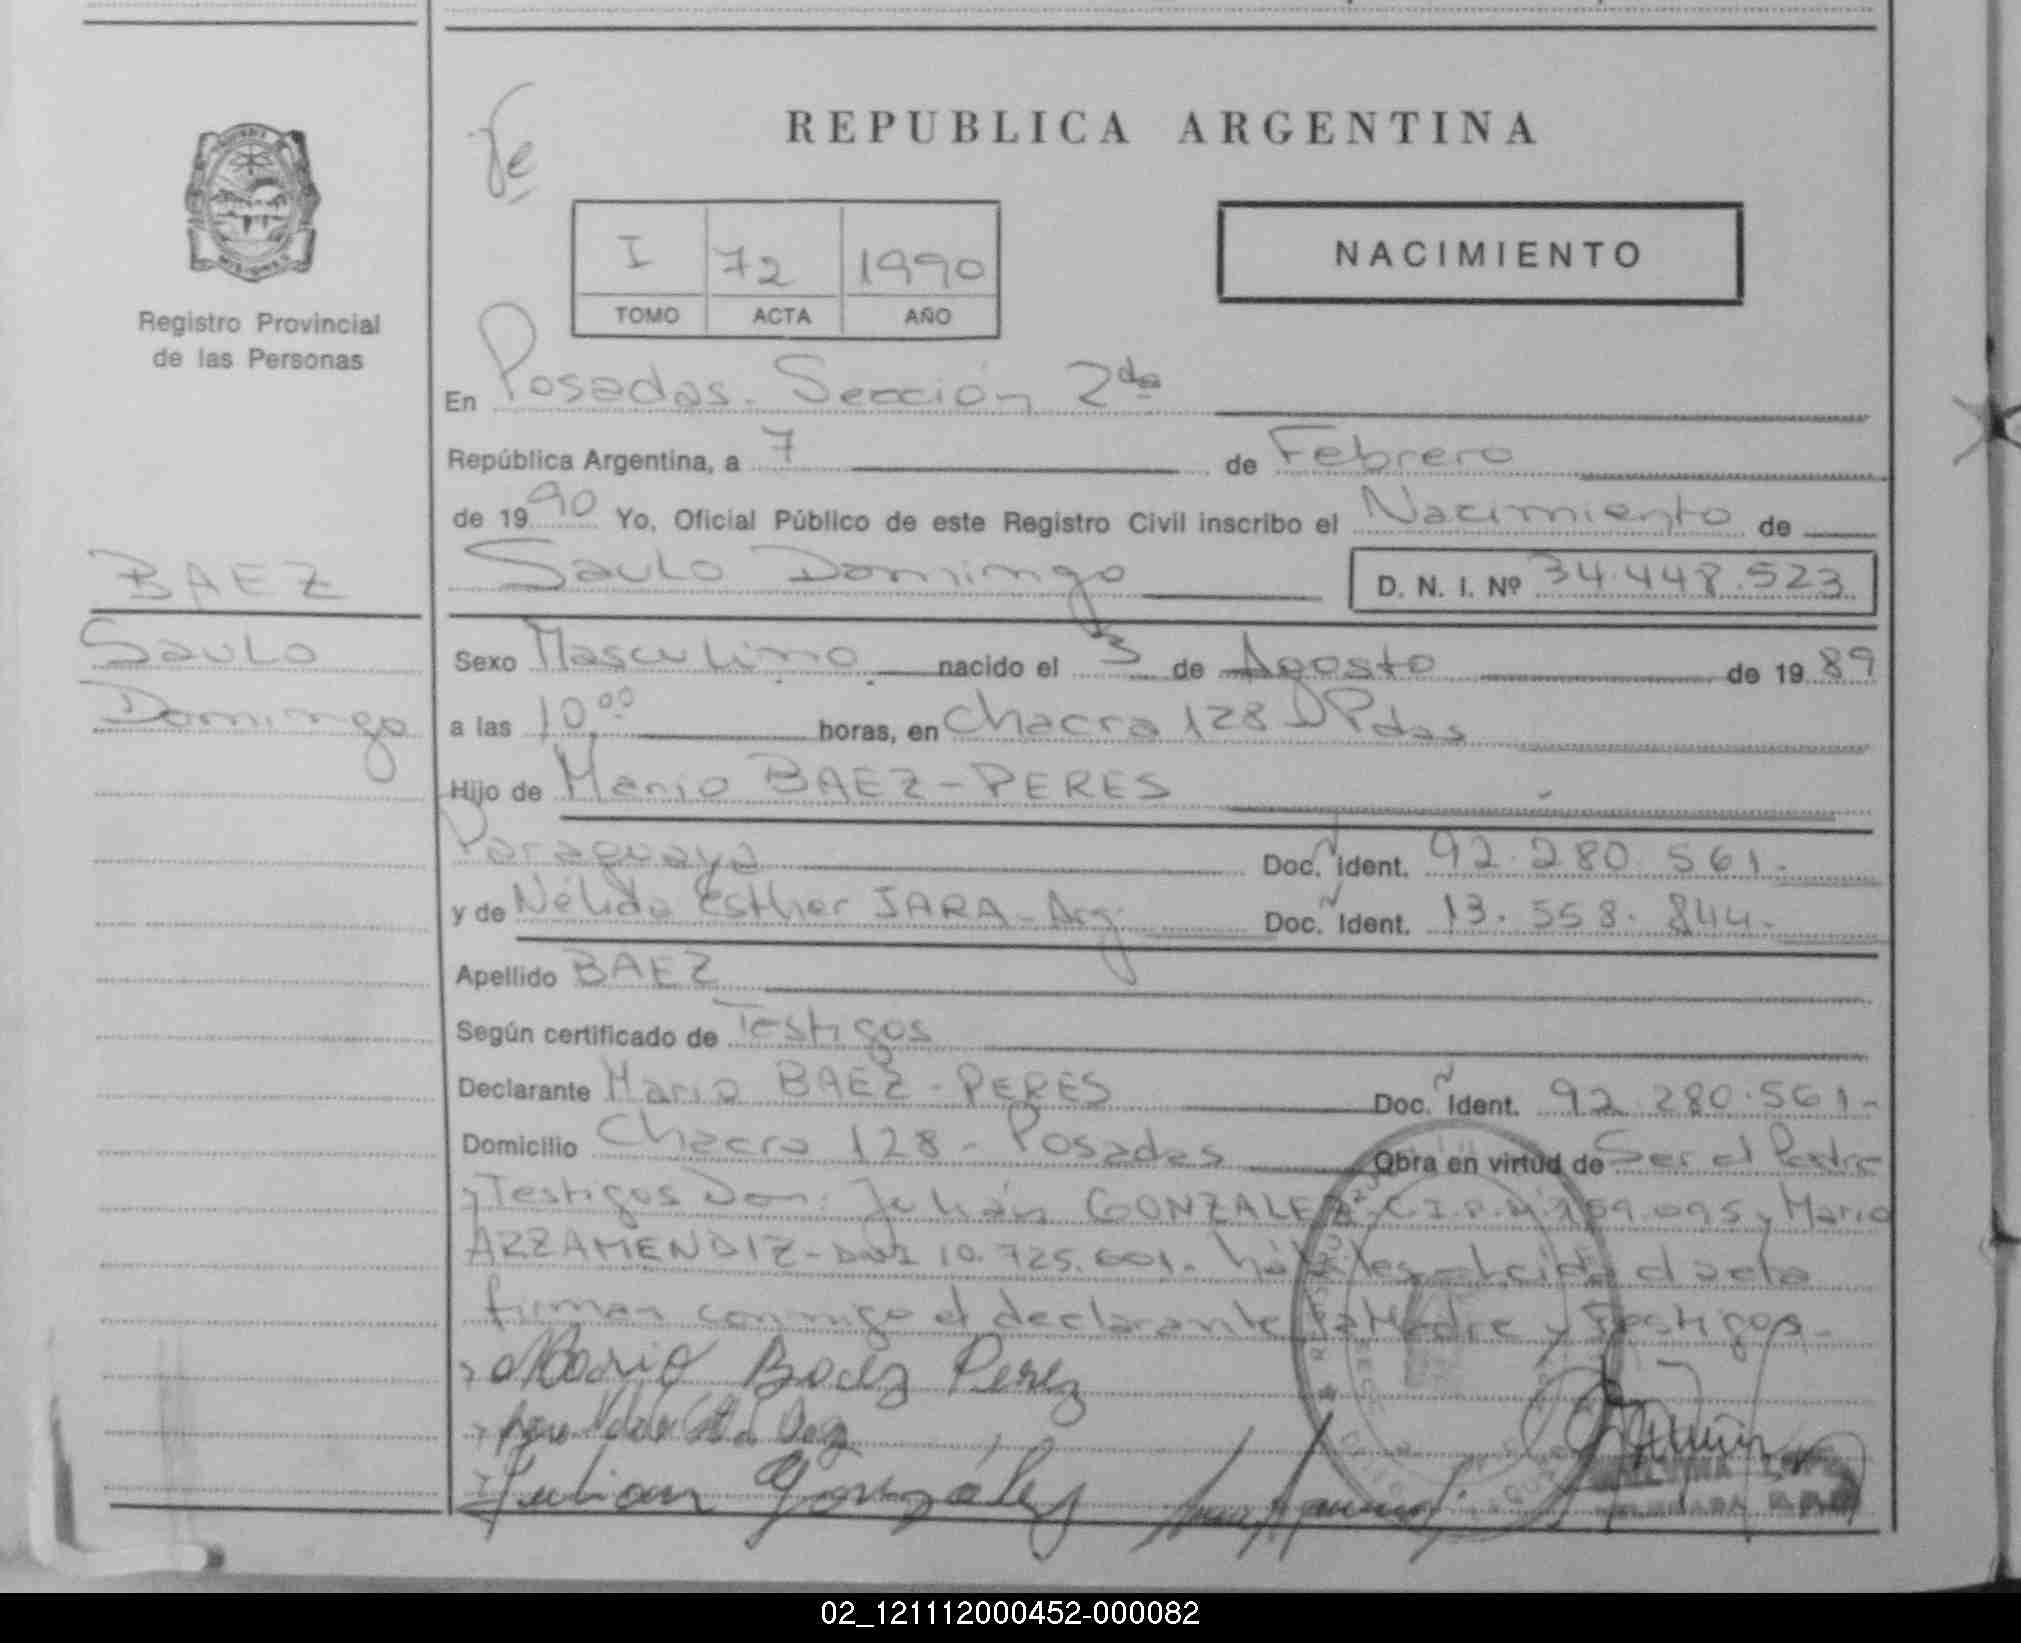 REPUBLICA ARGENTINA
I 72 1990
TOMO ACTA AÑO
NACIMIENTO
Registro Provincial
de las Personas
En Posadas. Sección 2da
República Argentina, a 7 de Febrero
de 1990 Yo, Oficial Público de este Registro Civil inscribo el Nacimiento de
Saulo Domingo D. N. I. Nº 34.448.523
BAEZ
Saulo
Domingo
Sexo Masculino nacido el 3 de Agosto de 1989
a las 10,00 horas, en Chacra 128 Pdas
Hijo de Mario BAEZ-PERES
Paraguaya Doc. Ident. 92.280.561.-
y de Nélida Esther JARA-Arg. Doc. Ident. 13.558.844.-
Apellido BAEZ
Según certificado de Testigos
Declarante Mario BAEZ-PERES Doc. Ident. 92.280.561-
Domicilio Chacra 128-Posadas Obra en virtud de Ser el Padre
Testigos Don: Julián GONZALEZ-C.I.P. 159.095 y Mario
ARZAMENDIZ-DNI 10.725.601. el acta
firman conmigo el declarante la Madre y Testigos.-
Mario Baez Perez
Julian González
02_121112000452-000082